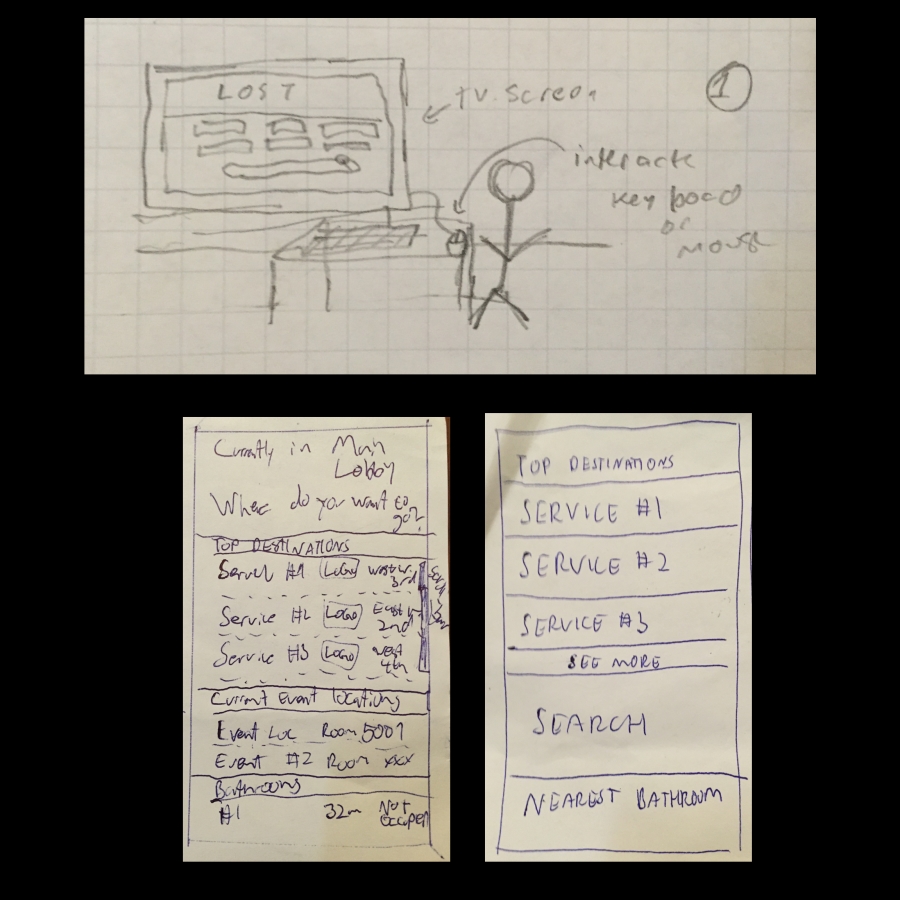 LOST
TV. Screen
1
interacte
Key board
or
mouse
Currently in Main
Lobby
Where do you want to
go?
TOP DESTINATIONS
Service #1 LOGO West W.
3rd
Service #2 LOGO East W.
2nd
Service #3 LOGO West
4th
Current Event locations
Event Loc Room 5001
Event #2 Room xxx
Bathrooms
#1 32m Not
occupied
TOP DESTINATIONS
SERVICE #1
SERVICE #2
SERVICE #3
SEE MORE
SEARCH
NEAREST BATHROOM